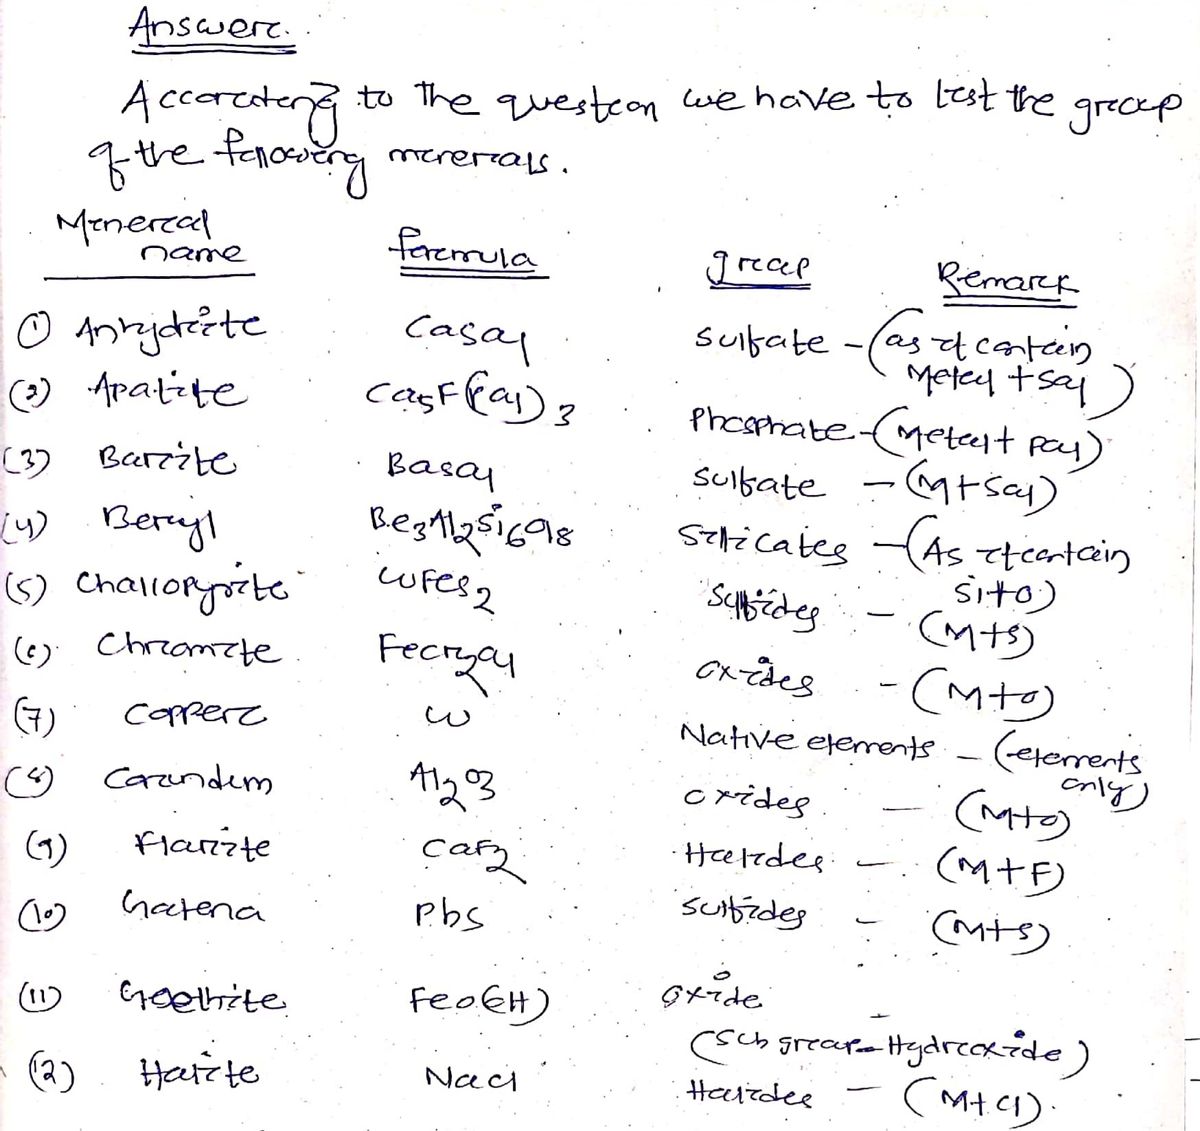 Answer.
According to the question we have to list the group
of the following minerals.
Mineral name formula group Remark
(1) Anhydrite CaSO4 Sulfate - (as it contain Metal + SO4)
(2) Apatite Ca5F(PO4)3 Phosphate - (Metal + PO4)
(3) Barite BaSO4 Sulfate - (M+SO4)
(4) Beryl Be3Al2Si6O18 Silicates - (As it contain Si+O)
(5) Challopyrite CuFeS2 Sulfides - (M+S)
(6) Chromite FeCr2O4 Oxides - (M+O)
(7) Copper Cu Native elements - (elements only)
(8) Corundum Al2O3 Oxides - (M+O)
(9) Florite CaF2 Halides - (M+F)
(10) Galena PbS Sulfides - (M+S)
(11) Goethite FeO(OH) Oxide -
(Sub group - Hydroxide)
(12) Halite NaCl Halides - (M+Cl).